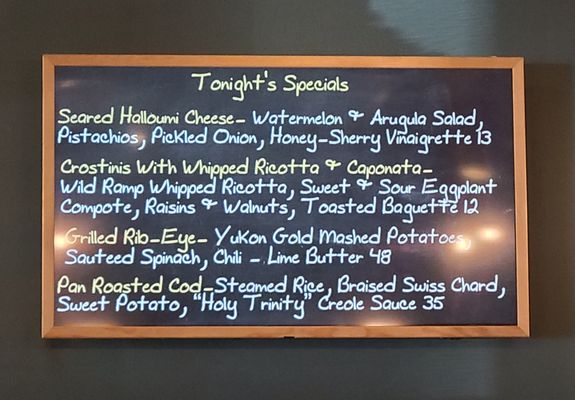 Tonight's Specials
Seared Halloumi Cheese- Watermelon & Arugula Salad,
Pistachios, Pickled Onion, Honey-Sherry Vinaigrette 13
Crostinis With Whipped Ricotta & Caponata-
Wild Ramp Whipped Ricotta, Sweet & Sour Eggplant
Compote, Raisins & Walnuts, Toasted Baguette 12
Grilled Rib-Eye- Yukon Gold Mashed Potatoes,
Sauteed Spinach, Chili - Lime Butter 48
Pan Roasted Cod-Steamed Rice, Braised Swiss Chard,
Sweet Potato, "Holy Trinity" Creole Sauce 35